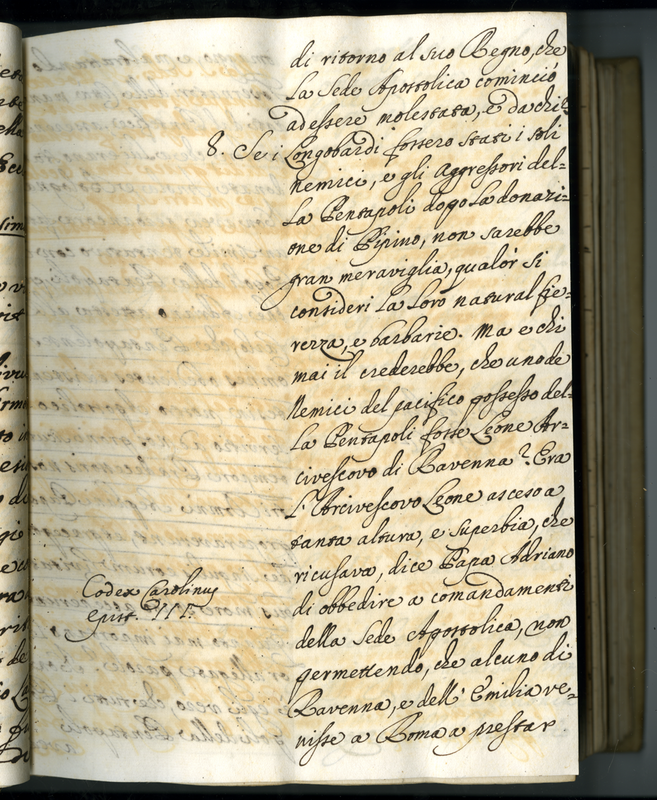 di ritorno al suo Regno, che
la Sede Apostolica cominciò
ad essere molestata, e da chi?
8. Se i Longobardi fossero stati i soli
nemici, e gli Aggressori del=
la Pentapoli dopo la donazi=
one di Pipino, non sarebbe
gran meraviglia, qualor si
consideri la loro natural fie=
rezza, e barbarie. Ma e chi
mai il crederebbe, che uno de
Nemici del pacifico possesso del=
la Pentapoli fosse Leone Ar=
civescovo di Ravenna? Era
l'Arcivescovo Leone asceso a
tanta altura, e superbia, che
ricusava, dice Papa Adriano
di obbedire a comandamenti
della Sede Apostolica, non
permettendo, che alcuno di
Ravenna, e dell' Emilia ve=
nisse a Roma a prestar
Codex Carolinus
Epist.